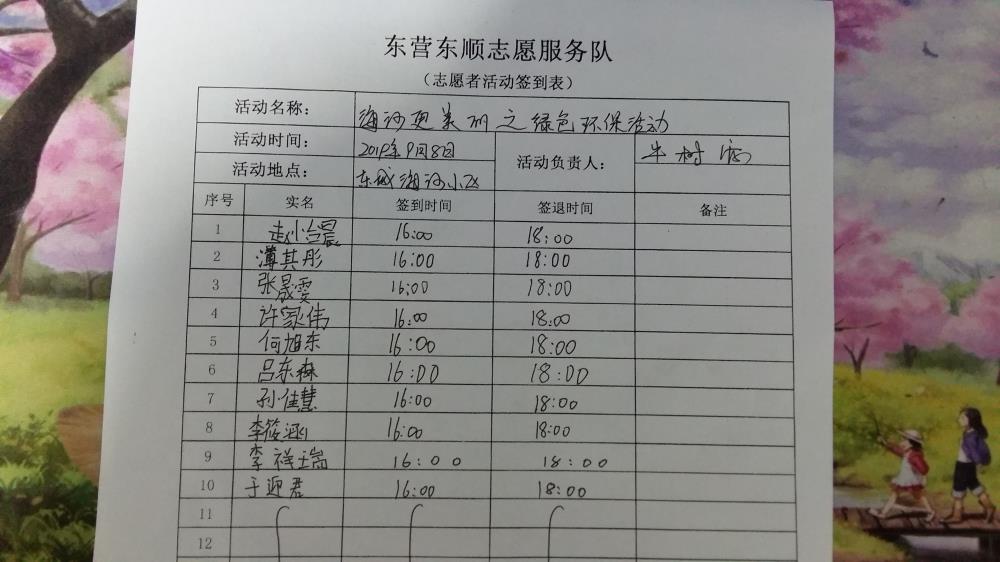 东营东顺志愿服务队
（志愿者活动签到表）
活动名称： 海河更美丽之绿色环保活动
活动时间： 2019年9月8日 活动负责人： 牛树
活动地点： 东城海河小区
序号 实名 签到时间 签退时间 备注
1 赵小晨 16:00 18:00
2 薄其彤 16:00 18:00
3 张晟雯 16:00 18:00
4 许家伟 16:00 18:00
5 何旭东 16:00 18:00
6 吕东霖 16:00 18:00
7 孙佳慧 16:00 18:00
8 李筱涵 16:00 18:00
9 李祥瑞 16:00 18:00
10 于迎君 16:00 18:00
11
12